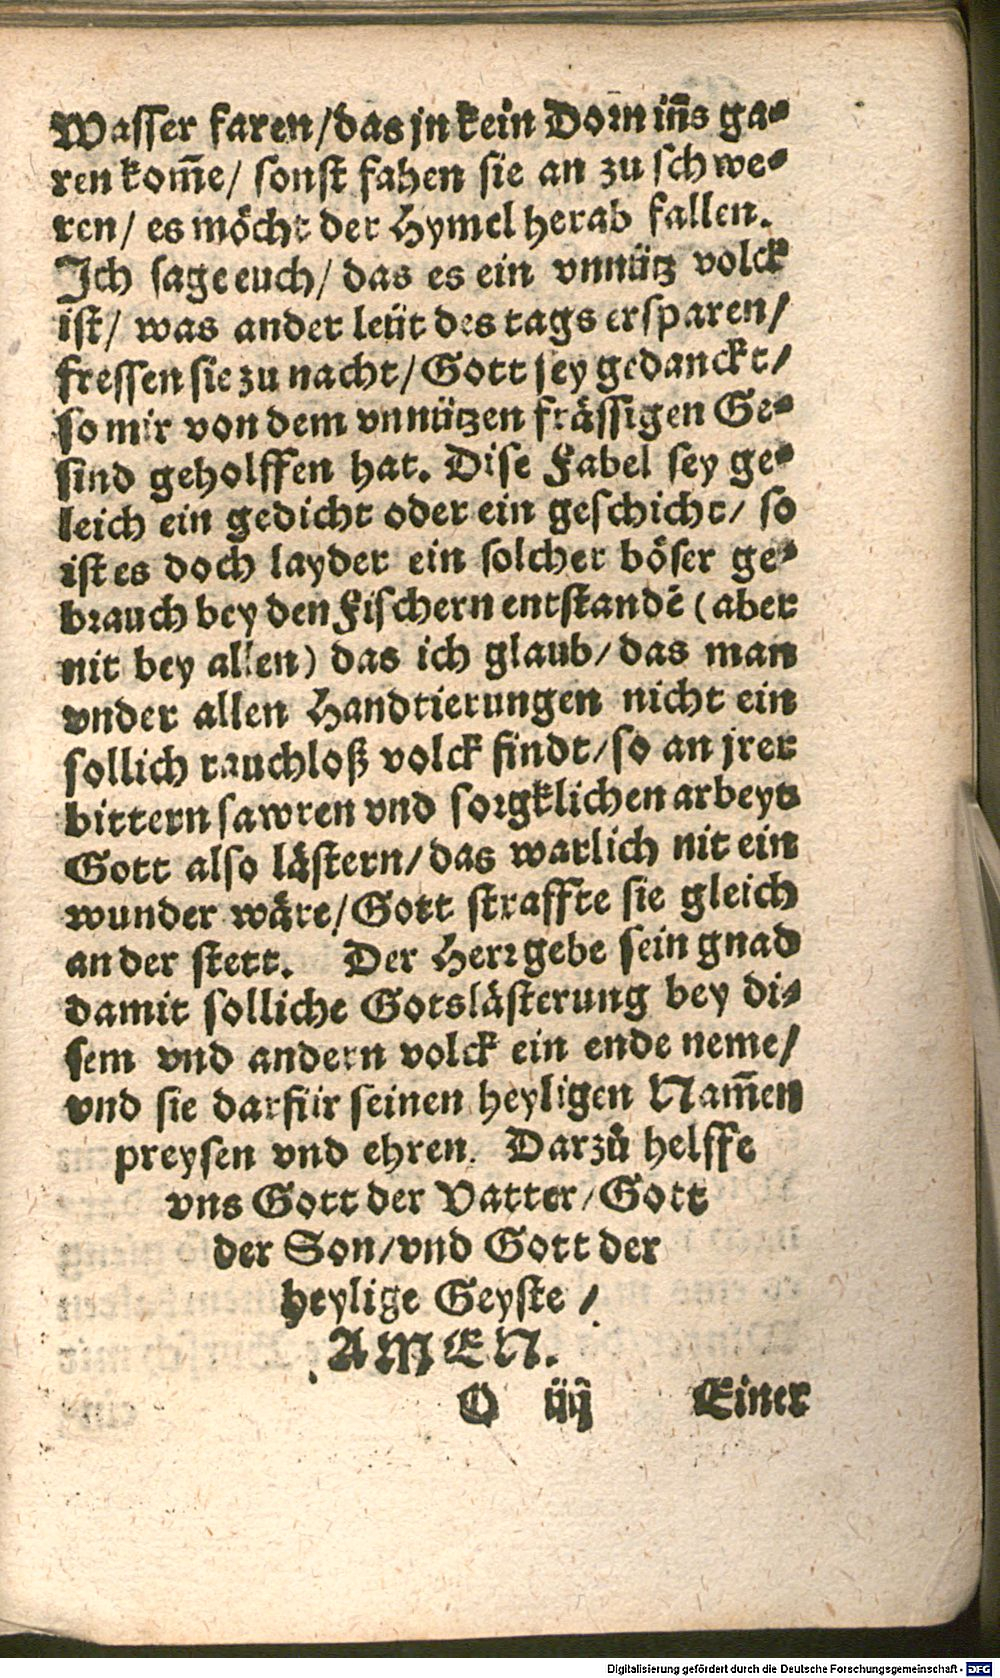 Wasser faren/das jn kein Dorn iñs ga-
ren kom̃e/ sonst fahen sie an zu schwe-
ren/ es möcht der Hymel herab fallen.
Ich sage euch/ das es ein vnnütz volck
ist/ was ander leüt des tags ersparen/
fressen sie zu nacht/ Gott sey gedanckt/
so mir von dem vnnützen frässigen Ge-
sind geholffen hat. Dise Fabel sey ge-
leich ein gedicht oder ein geschicht/ so
ist es doch layder ein solcher böser ge-
brauch bey den Fischern entstandẽ (aber
nit bey allen) das ich glaub/ das man
vnder allen Handtierungen nicht ein
sollich rauchloß volck findt/ so an jrer
bittern sawren vnd sorgklichen arbeyt
Gott also lästern/ das warlich nit ein
wunder wäre/ Gott straffte sie gleich
an der stett. Der Herr gebe sein gnad
damit solliche Gotslästerung bey di-
sem vnd andern volck ein ende neme/
vnd sie darfür seinen heyligen Nam̃en
preysen vnd ehren. Darzů helffe
vns Gott der Vatter/ Gott
der Son/ vnd Gott der
heylige Geyste/
AMEN.
O iiij Einer
Digitalisierung gefördert durch die Deutsche Forschungsgemeinschaft - DFG